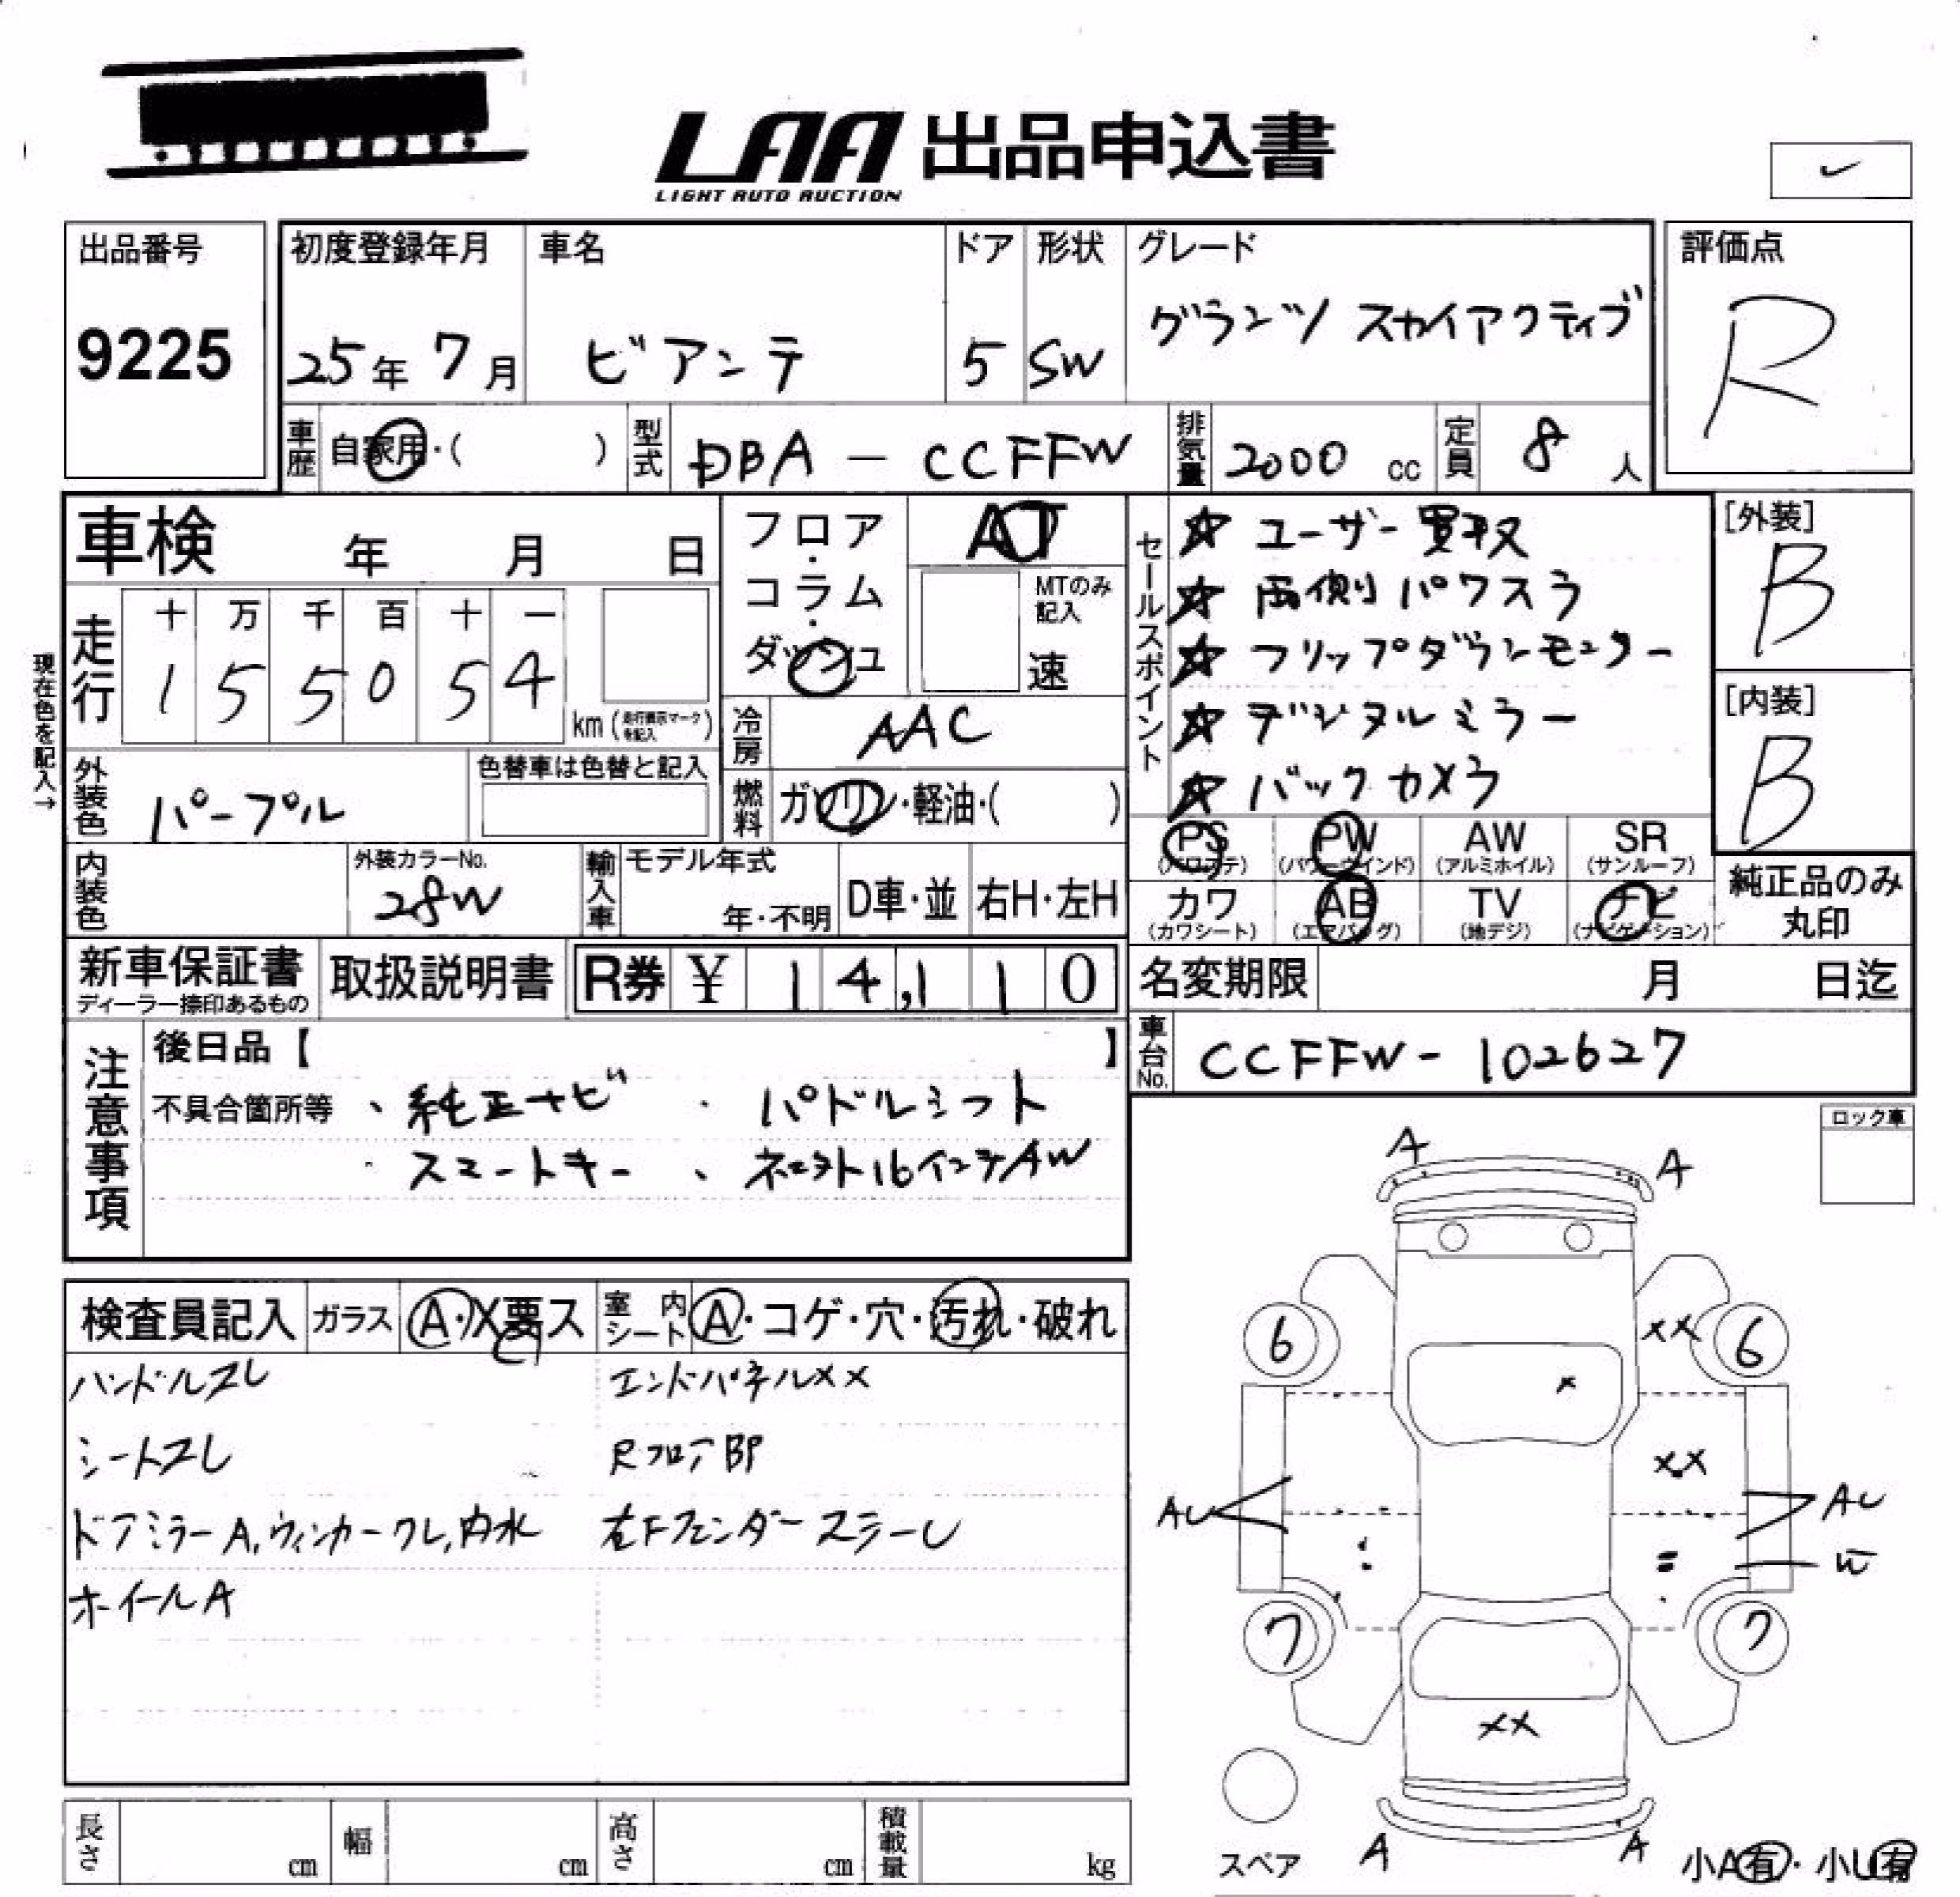 LAA 出品申込書
LIGHT AUTO AUCTION
出品番号
9225
初度登録年月
25年 7月
車名
ビアンテ
ドア
5
形状
SW
グレード
グランツ スカイアクティブ
評価点
R
車歴
自家用・( )
型式
DBA - CCFFW
排気量
2000 cc
定員
8 人
車検 年 月 日
フロア・コラム・ダッシュ
AT
MTのみ記入
速
走行
十 万 千 百 十 一
1 5 5 0 5 4
km (走行表示マークを記入)
現在色を記入→
冷房
AAC
外装色
パープル
色替車は色替と記入
燃料
ガソリン・軽油・( )
内装色
外装カラーNo.
28W
輸入車
モデル年式
年・不明
D車・並
右H・左H
セールスポイント
☆ ユーザー買取
☆ 両側パワスラ
☆ フリップダウンモニター
☆ デジタルミラー
☆ バックカメラ
[外装]
B
[内装]
B
PS (パワステ)
PW (パワーウインド)
AW (アルミホイル)
SR (サンルーフ)
カワ (カワシート)
AB (エアバッグ)
TV (地デジ)
ナビ (ナビゲーション)
純正品のみ丸印
新車保証書
ディーラー捺印あるもの
取扱説明書
R券 ¥ 14,110
名変期限 月 日迄
車台No.
CCFFW - 102627
注意事項
後日品【 】
不具合箇所等 ・純正ナビ ・パドルシフト
・スマートキー ・ネクスト16インチAW
ロック車
検査員記入
ガラス A・X要ス
室内シート A・コゲ・穴・汚れ・破れ
ハンドルスレ
シートスレ
ドアミラーA,ウィンカークレ,内水
ホイールA
エンドパネルXX
Rフロア部P
右Fフェンダーステーし
A
A
6
XX
6
X
XX
AU
AU
7
7
XX
A
A
スペア
小A有・小U有
長さ cm
幅 cm
高さ cm
積載量 kg